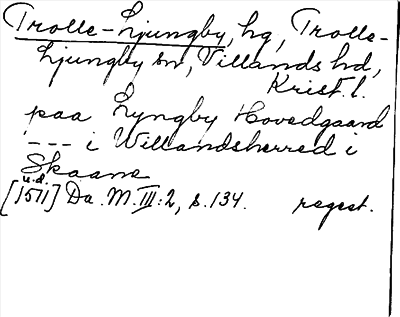 Trolle-Ljungby, hg, Trolle-
Ljungby sn, Villands hd,
Krist. l.
paa Lyngby Hovedgaard
--- i Willandsherred i
Skaane
u.d.
[1511] Da. M. III:2, s. 134. regest.